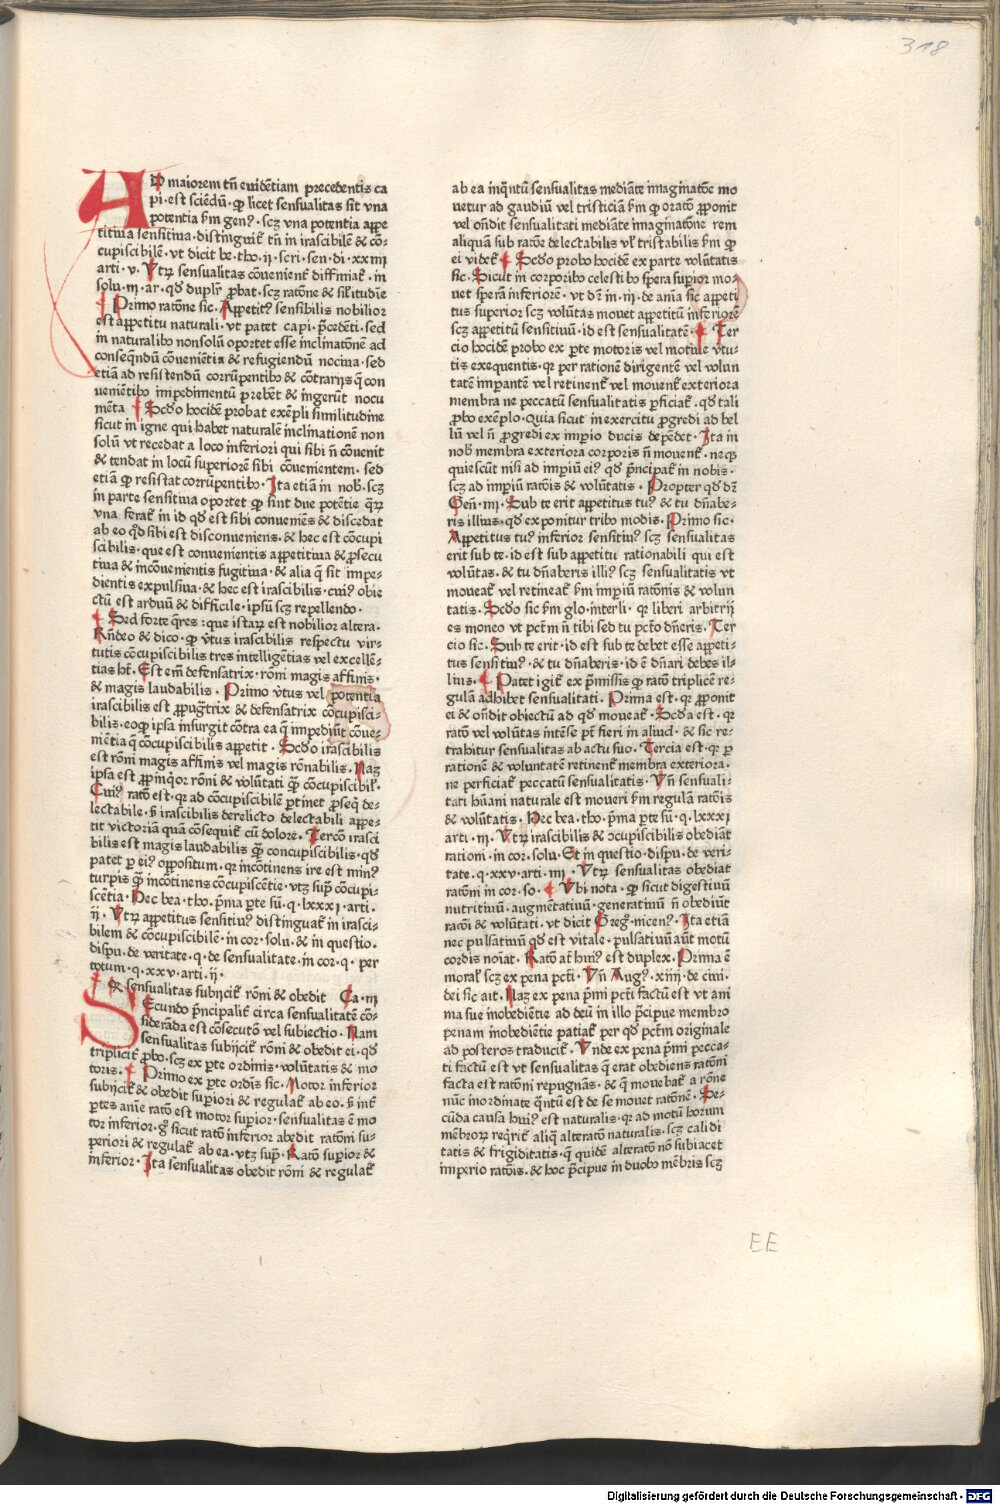 318
AD maiorem tñ euidẽtiam precedentis ca
pi · est sciẽdũ · ꝙ licet sensualitas sit vna
potentia ẜm genꝰ · scꝫ vna potentia appe
titiua sensitiua · distinguit᷑ tñ in irascibilẽ & cõ-
cupiscibilẽ · vt dicit be · tho · ij · scri · sen · di · xxiiij
arti · v · Vtꝝ sensualitas cõuenient᷑ diffiniat᷑ · in
solu · iij · ar · qđ duplr̃ ꝓbat · scꝫ ratõne & sil̃itudĩe
Primo ratõne sic · Appetitꝰ sensibilis nobilior
est appetitu naturali · vt patet capi · p̃cedẽti · sed
in naturalibꝰ nonsolũ oportet esse inclinatõnẽ ad
conseqñdũ cõueniẽtia & refugiendũ nociua · sed
etiã ad resistendũ corrũpentibꝰ & cõtrarijs q̃ con
ueniẽtibꝰ impedimentũ p̃ebẽt & ingerũt nocu
mẽta Scđo hocidẽ probat exẽpli similitudine
sicut in igne qui habet naturalẽ inclinationẽ non
solũ vt recedat a loco inferiori qui sibi ñ cõuenit
& tendat in locũ superiorẽ sibi cõuenientem · sed
etiã ꝙ resistat corrũpentibꝰ · Ita etiam in nob · scꝫ
in parte sensitiua oportet ꝙ sint due potẽtie q̃ꝝ
vna ferat᷑ in id qđ est sibi conueniẽs & discedat
ab eo qđ sibi est disconueniens · & hec est cõcupi
scibilis · que est conuenientis appetitiua & ꝓsecu
tiua & incõuenientis fugitiua · & alia q̃ sit impe-
dientis expulsiua · & hec est irascibilis · cuiꝰ obie
ctũ est arduũ & difficile · ipsũ scꝫ repellendo ·
Sed forte q̃res : que istaꝝ est nobilior altera ·
Rñdeo & dico · ꝙ v̾tus irascibilis respectu vir-
tutis cõcupiscibilis tres intelligẽtias vel excellẽ-
tias ht̃ · Est em̃ defensatrix · rõni magis affinis ·
& magis laudabilis · Primo v̾tus vel potentia
irascibilis est ꝓpugt̃rix & defensatrix cõcupisci-
bilis · eoꝙ ipsa insurgit cõtra ea q̃ impediũt cõue-
niẽtia q̃ cõcupiscibilis appetit · Scđo irascibilis
est rõni magis affinis vel magis rõnabilis · Naꝫ
ipsa est ꝓpinqꝰor rõni & volũtati q̃ cõcupiscibil̃ ·
Cuiꝰ ratõ est · qꝛ ad cõcupiscibilẽ ꝑtinet ꝓseq̃ de-
lectabile · ß irascibilis derelicto delectabili appe-
tit victoriã quã cõsequit᷑ cũ dolore · Tercõ irasci
bilis est magis laudabilis q̃ concupiscibilis · qđ
patet ꝑ eiꝰ oppositum · qꝛ incõtinens ire est minꝰ
turpis q̃ incõtinens cõcupiscẽtie · vtꝫ suꝑ cõcupi-
scẽtia · Hec bea · tho · p̃ma ꝑte sũ · q · lxxxi · arti ·
ij · Vtꝝ appetitus sensitiuꝰ distinguat᷑ in irasci-
bilem & cõcupiscibilẽ · in cor · solu · & in questio ·
dispu · de veritate · q · de sensualitate · in cor · q · per
totum · q · xxv · arti · ij ·
Qꝛ sensualitas subijcit᷑ rõni & obedit Ca · iij
SEcundo p̃ncipalit᷑ circa sensualitatẽ cõ-
siderãda est cõsecutõ vel subiectio · Nam
sensualitas subijcit᷑ rõni & obedit ei · qđ
triplicit᷑ ꝓbo · scꝫ ex ꝑte ordinis · volũtatis & mo
toris · Primo ex ꝑte ordĩs sic · Motor inferior
subijcit᷑ & obedit suꝑiori & regulat᷑ ab eo · ß int᷑
ꝑtes anie ratõ est motor suꝑior · sensualitas ẽ mo
tor inferior · g̃ sicut ratõ inferior abedit ratõni su-
periori & regulat᷑ ab ea · vtꝫ suꝑ · Ratõ suꝑior &
inferior · Ita sensualitas obedit rõni & regulat᷑
ab ea inq̃ntũ sensualitas mediãte imaginatõe mo
uetur ad gaudiũ vel tristiciã ẜm ꝙ oratõ ꝓponit
vel oñdit sensualitati mediãte imaginatõne rem
aliquã sub ratõe delectabilis vl̃ tristabilis ẜm ꝙ
ei videt᷑ Scđo probo hocidẽ ex parte volũtatis
sic · Sicut in corporibꝰ celestibꝰ spera suꝑior mo-
uet sperã inferiorẽ · vt dr̃ in · iij · de anĩa sic appeti
tus superior scꝫ volũtas mouet appetitũ inferiorẽ
scꝫ appetitũ sensitiuũ · id est sensualitatẽ · Ter
cio hocidẽ probo ex ꝑte motoris vel motiue v̾tu-
tis exequentis · qꝛ per rationẽ dirigentẽ vel volun
tatẽ imꝑantẽ vel retinent᷑ vel mouent᷑ exteriora
membra ne peccatũ sensualitatis ꝑficiat᷑ · qđ tali
ꝓbo exẽplo · quia sicut in exercitu ꝓgredi ad bel
lũ vel ñ ꝓgredi ex imꝑio ducis depẽdet · Ita in
nob membra exteriora corporis ñ mouent᷑ · neqꝫ
quiescũt nisi ad imꝑiũ eiꝰ qđ p̃ncipat᷑ in nobis ·
scꝫ ad imꝑiũ ratõis & volũtatis · Propter qđ dr̃
Geñ · iiij · Sub te erit appetitus tuꝰ & tu dñabe-
ris illius · qđ exponitur tribꝰ modis · Primo sic ·
Appetitus tuꝰ inferior sensitiuꝰ scꝫ sensualitas
erit sub te · id est sub appetitu rationabili qui est
volũtas · & tu dñaberis illiꝰ scꝫ sensualitatis vt
moueat᷑ vel retineat᷑ ẜm imꝑiũ ratõnis & volun
tatis · Scđo sic ẜm glo · interli · qꝛ liberi arbitrij
es moneo vt pctm̃ ñ tibi sed tu pctõ dñeris · Ter
cio sic · Sub te erit · id est sub te debet esse appeti-
tus sensitiuꝰ · & tu dñaberis · id ẽ dñari debes il-
lius · Patet igit᷑ ex p̃missis ꝙ ratõ triplicẽ re-
gulã adhibet sensualitati · Prima est · qꝛ ꝓponit
ei & oñdit obiectũ ad qđ moueat᷑ · Scđa est · qꝛ
ratõ vel volũtas intẽse pt̃ fieri in aliud · & sic re-
trabitur sensualitas ab actu suo · Tercia est · qꝛ ꝑ
rationẽ & voluntatẽ retinent᷑ membra exteriora ·
ne perficiat᷑ peccatũ sensualitatis · Vñ sensuali-
tati hũani naturale est moueri ẜm regulã ratõis
& volũtatis · Hec bea · tho · p̃ma ꝑte sũ · q · lxxxi
arti · iij · Vtꝝ irascibilis & ↄcupiscibilis obediãt
rationi · in cor · solu · Et in questio · dispu · de veri-
tate · q · xxv · arti · iiij · Vtꝝ sensualitas obediat
ratõni in cor · so · Vbi nota · ꝙ sicut digestiuũ
nutritiuũ · augmẽtatiuũ · generatiuũ ñ obediũt
ratõi & volũtati · vt dicit Greg · nicenꝰ · Ita etiã
nec pulsatiuũ qđ est vitale · pulsatiuũ aũt motũ
cordis noĩat · Ratõ at᷑ huiꝰ est duplex · Prima ẽ
moral̃ scꝫ ex pena pcti · Vñ Augꝰ · xiiij · de ciui ·
dei sic ait · Naꝫ ex pena p̃mi pcti factũ est vt ani
ma sue inobediẽtie ad deũ in illo p̃cipue membro
penam inobediẽtie patiat᷑ per qđ pctm̃ originale
ad posteros traducit᷑ · Vnde ex pena p̃mi pecca-
ti factũ est vt sensualitas q̃ erat obediens ratõni
facta est ratõni repugnãs · & q̃ mouebat᷑ a rõne
nũc inordinate q̃ntũ est de se mouet ratõnẽ · Se-
cũda causa huiꝰ est naturalis · qꝛ ad motũ horum
mẽbroꝝ req̃rit᷑ aliq̃ alteratõ naturalis · scꝫ calidi
tatis & frigiditatis · q̃ quidẽ alteratõ nõ subiacet
imperio ratõis · & hoc p̃cipue in duobꝰ mẽbris scꝫ
EE
Digitalisierung gefördert durch die Deutsche Forschungsgemeinschaft - DFG